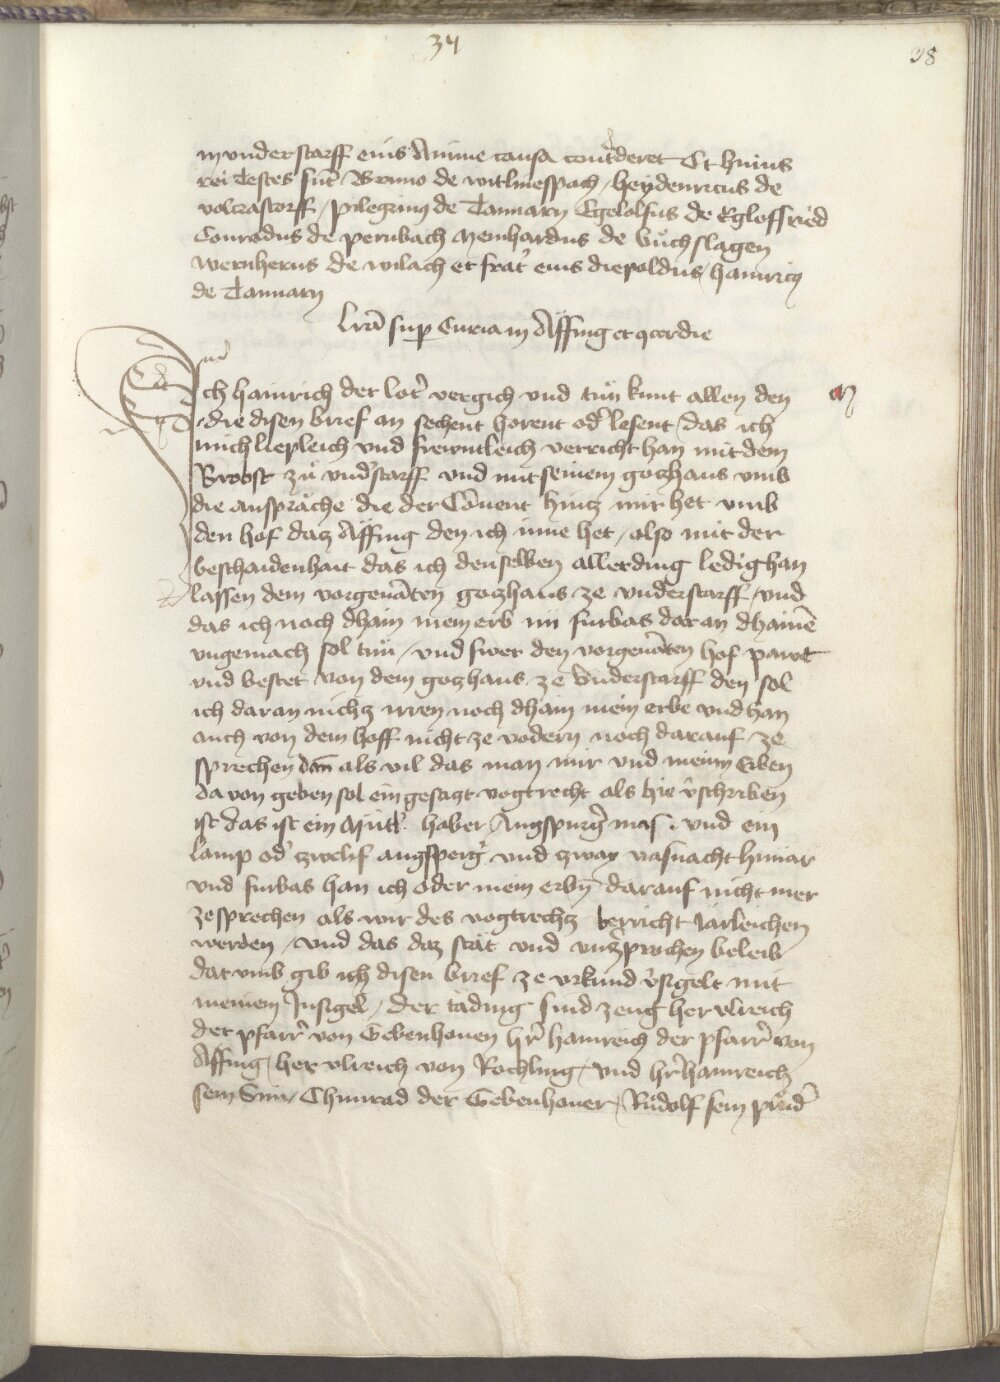 34
98
in vnderstorff eius Anime causa contderet Et huius
rei Testes sut Bruno de witlinespach / heydenricus de
volcrastorff / pilegrinus de Tannarn Egelolfus de Egloffried
Conradus de pernbach Meinhardus de Buchslagen
wernherus de wilach et frat eius diepoldus / hainricus
de Tannarn
Lra sup Curia in Äffing et
Ich hainrich der vergich vnd tun kunt allen den
die disen brief an sechent horent od lesent / das ich
mich liepleich vnd frewntleich verricht han mit dem
Brobst zu vnd'storff vnd mit seinem gotzhaus vmb
die ansprache die der Convent hintz mir het vmb
den hof datz Äffing den ich inne het / also mit der
beschaidenhait das ich denselben allerding ledig han
lassen dem vorgenāten gotzhaus ze vnderstorff / vnd
das ich noch dhain mein erb im furbas daran dhainē
vngemach sol tun / vnd swer den vorgenāten hof pawt
vnd bestet von dem gotzhaus ze vnderstorff den sol
ich daran nichtz irren noch dhain mein erbe vnd han
auch von dem hoff nicht ze vodern noch darauf ze
sprechen dan als vil das man mir vnd meinen Erben
da von geben sol ein gesatzt vogtrecht als hie v'schriben
ist das ist ein Mutt haber Augspurg' mas / vnd ein
lamp od' zwelif augsperg' vnd zway vasnacht hunar
vnd furbas han ich oder mein erbn darauf nicht mer
ze sprechen als wir des vogtrechtz verricht Järleichen
werden / vnd das daz stät vnd vnzprochen beleib
dar vmb gib ich disen brief ze vrkund v'sigelt mit
meinem Insigel / der täding sind zeug her vlreich
der pfarr' von Gebenhouen hr' hainreich der pfarr' von
Affing / her vlreich von Rochling / vnd hr' hainreich
sein Sun / Chunrad der Gebenhouer / Rudolf sein prud'